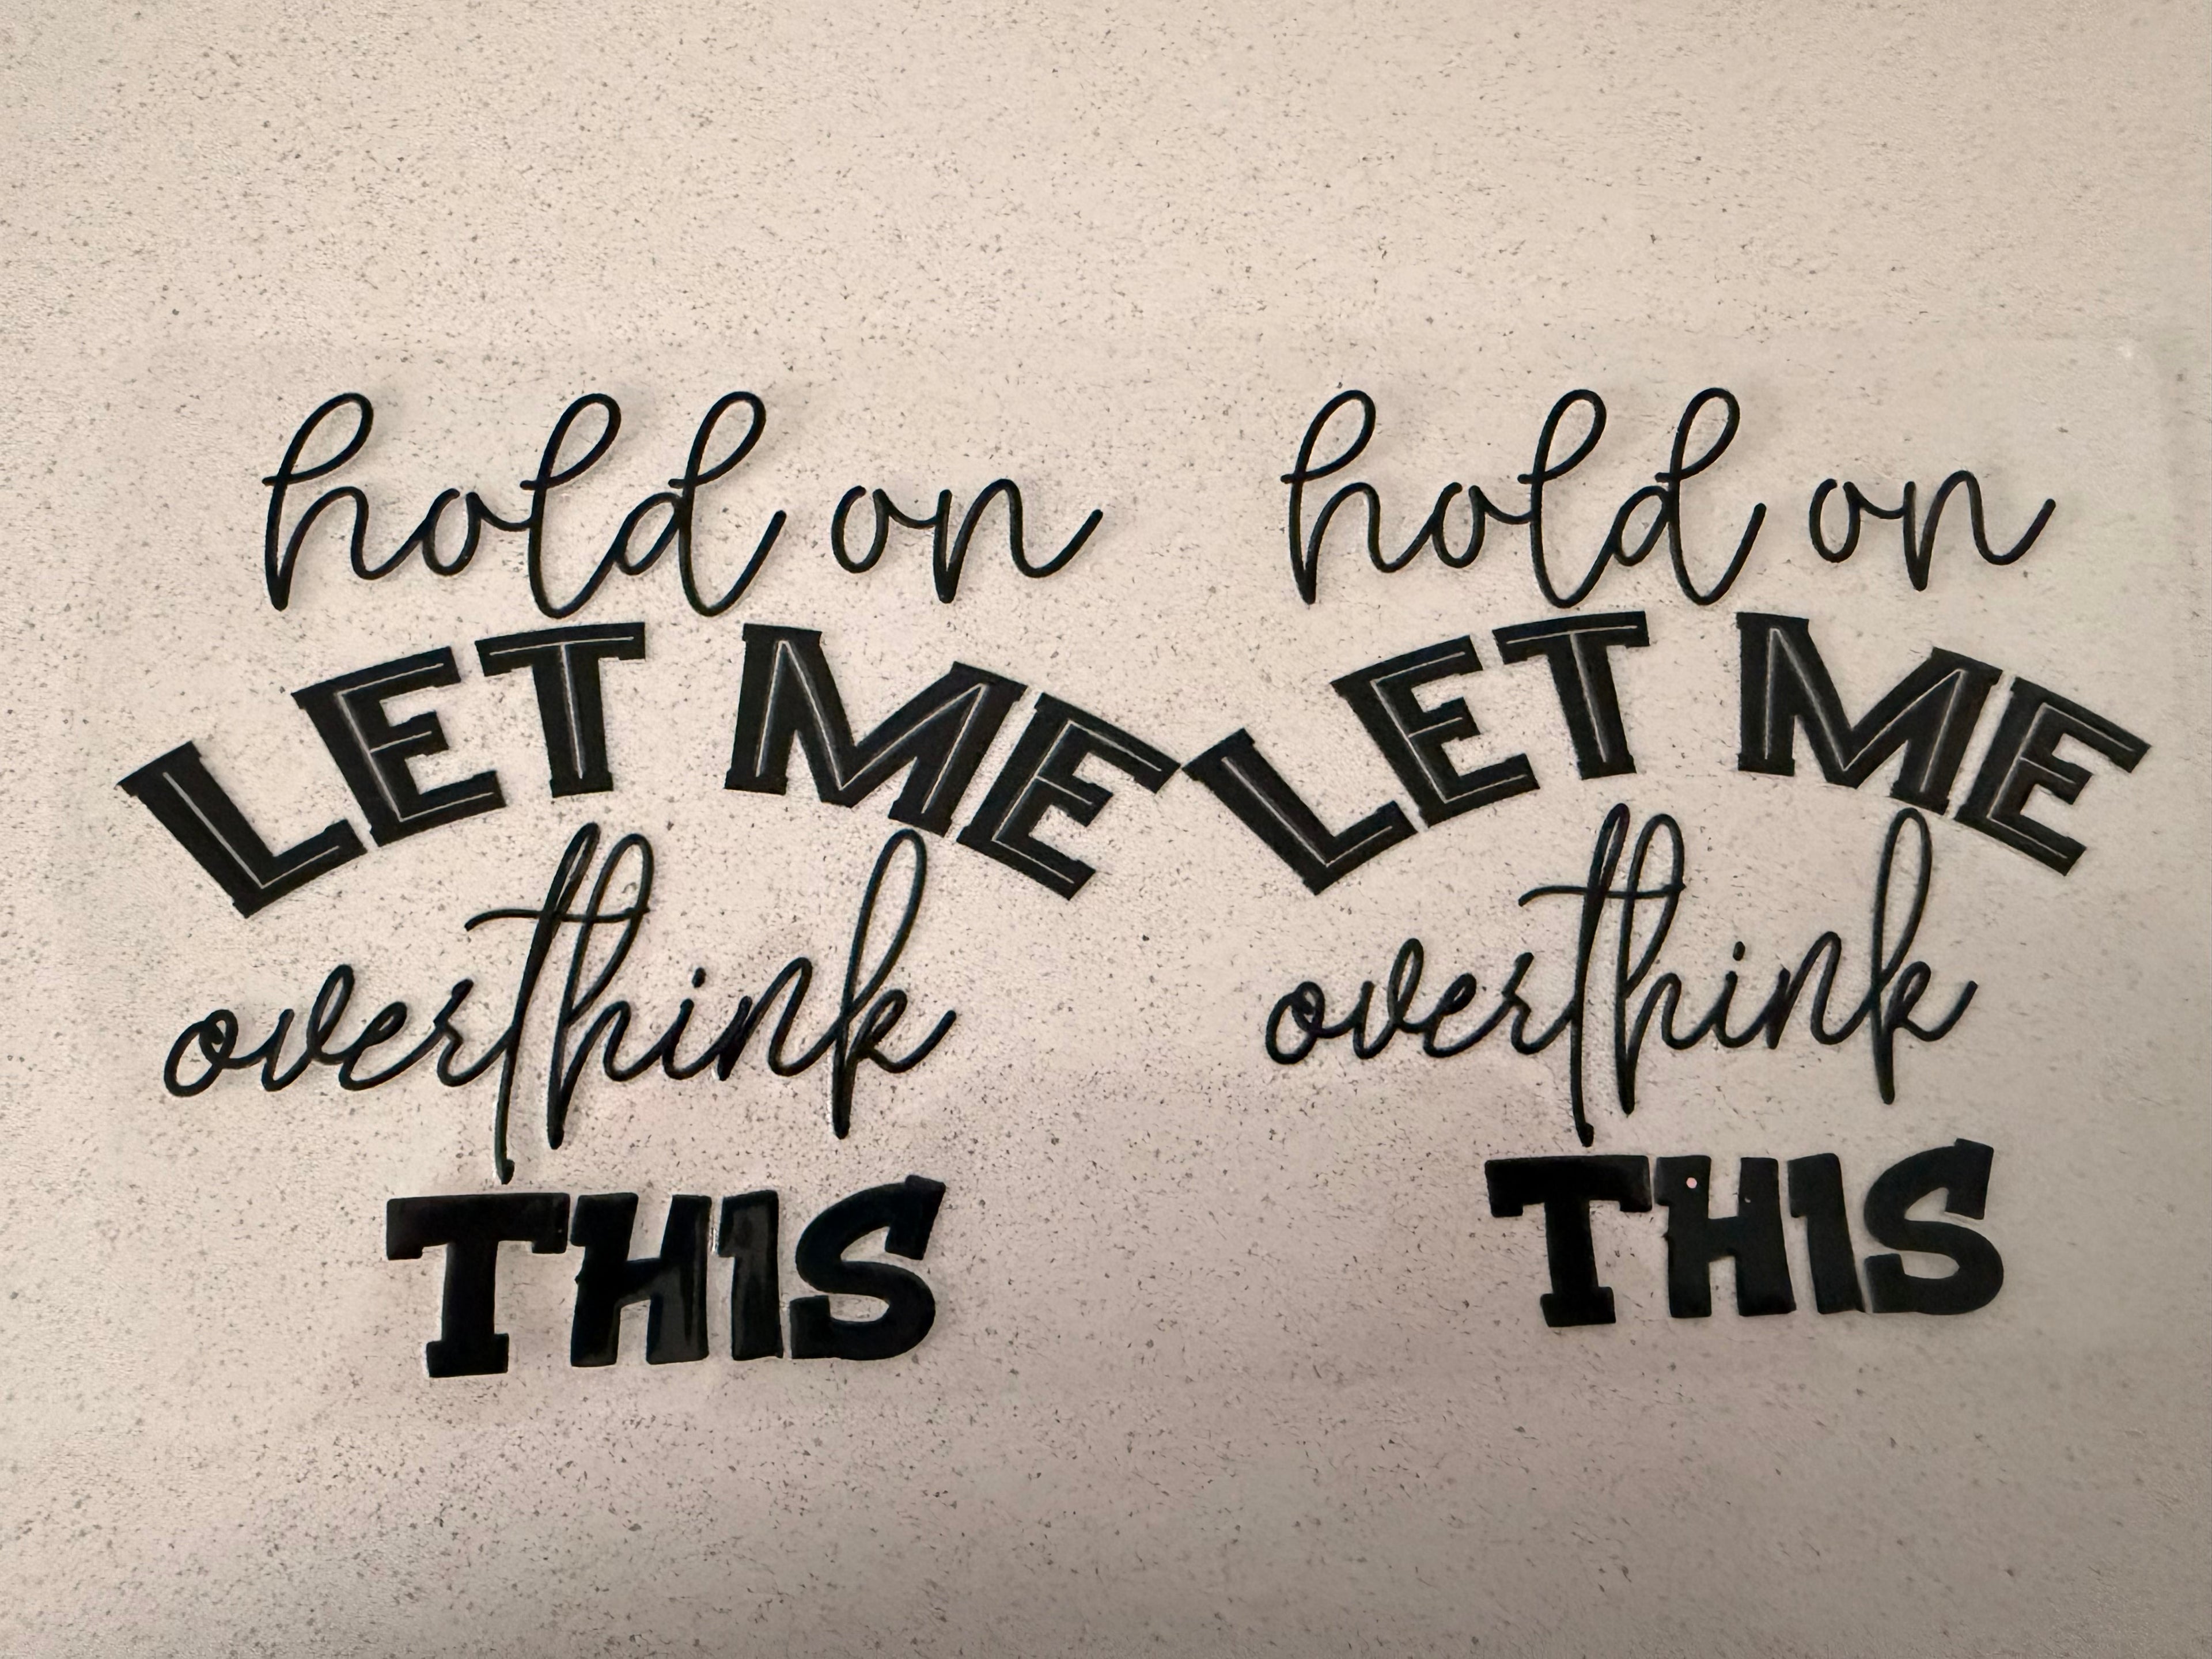 hold on
LET ME
overthink
THIS
hold on
LET ME
overthink
THIS